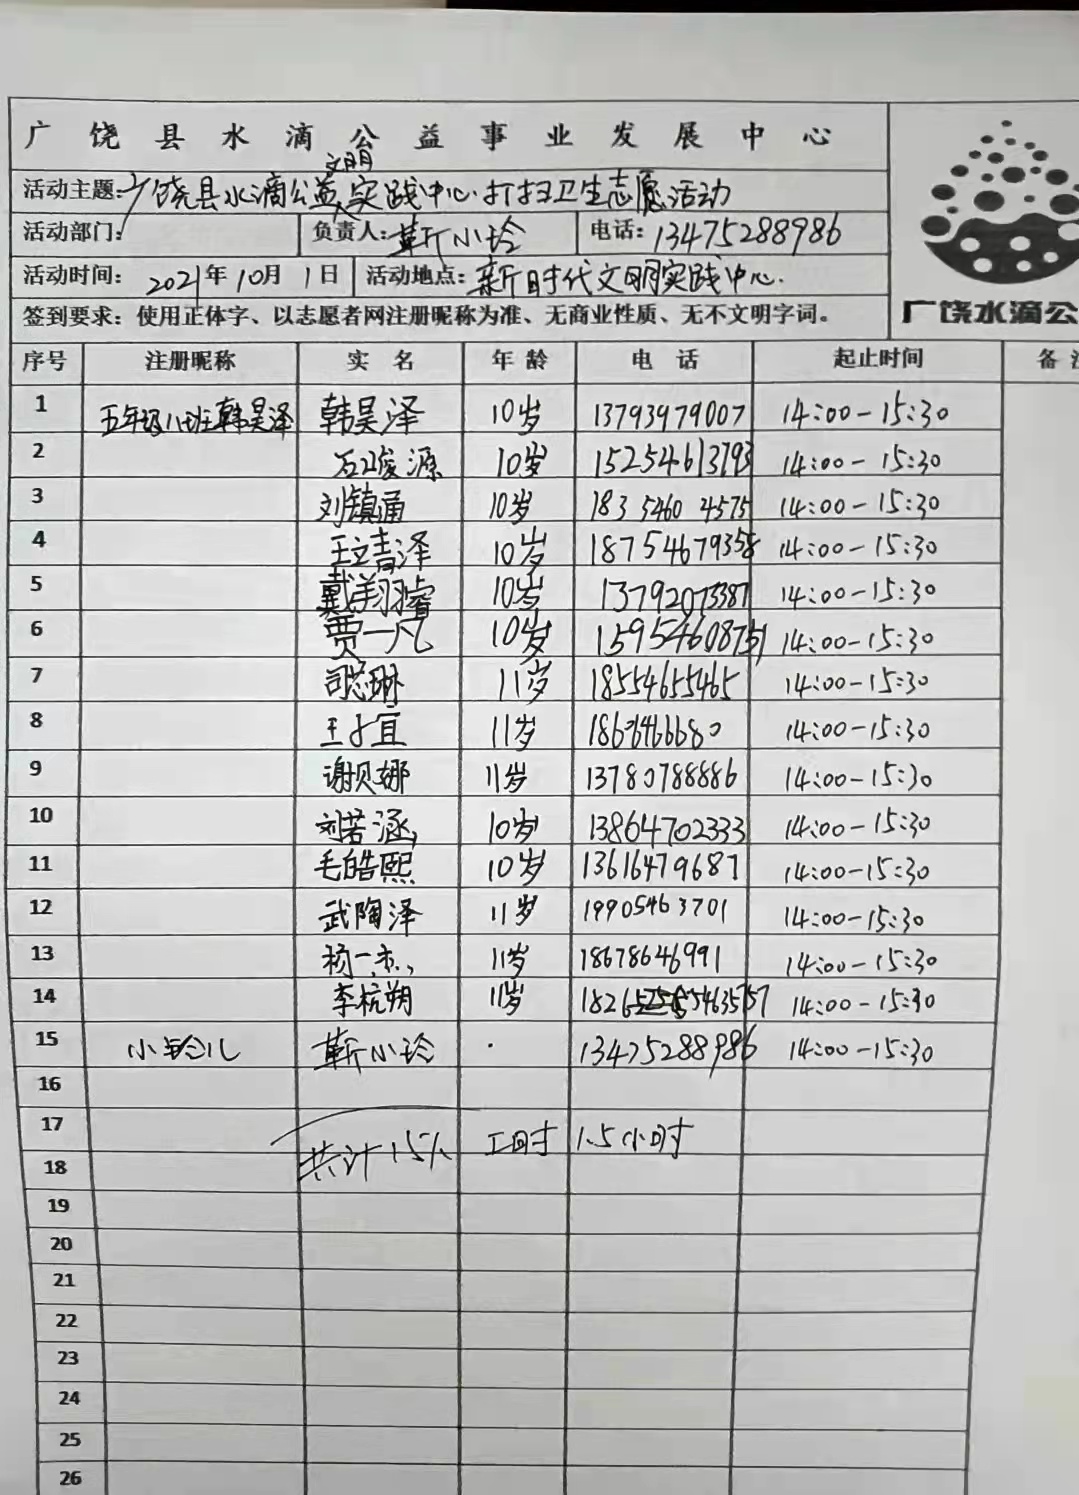 广饶县水滴公益事业发展中心
活动主题:广饶县水滴公益文明实践中心打扫卫生志愿活动
活动部门: 负责人:靳小玲 电话:13475288986
活动时间:2021年10月1日 活动地点:新时代文明实践中心.
签到要求:使用正体字、以志愿者网注册昵称为准、无商业性质、无不文明字词。
广饶水滴公
序号 注册昵称 实名 年龄 电话 起止时间 备注
1 五年级八班韩昊泽 韩昊泽 10岁 13793979007 14:00-15:30
2 石峻源 10岁 15254613793 14:00-15:30
3 刘镇通 10岁 183 5460 4575 14:00-15:30
4 王立吉泽 10岁 18754679358 14:00-15:30
5 戴翔睿 10岁 13792073387 14:00-15:30
6 贾一凡 10岁 15954608751 14:00-15:30
7 11岁 18554655465 14:00-15:30
8 王子宜 11岁 14:00-15:30
9 谢贝娜 11岁 13780788886 14:00-15:30
10 刘若涵 10岁 13864702333 14:00-15:30
11 毛皓熙 10岁 13616479687 14:00-15:30
12 武陶泽 11岁 19905463701 14:00-15:30
13 杨一 11岁 18678646991 14:00-15:30
14 李杭朔 11岁 14:00-15:30
15 小铃儿 靳小玲 13475288986 14:00-15:30
16
17 共计15人 工时 1.5小时
18
19
20
21
22
23
24
25
26